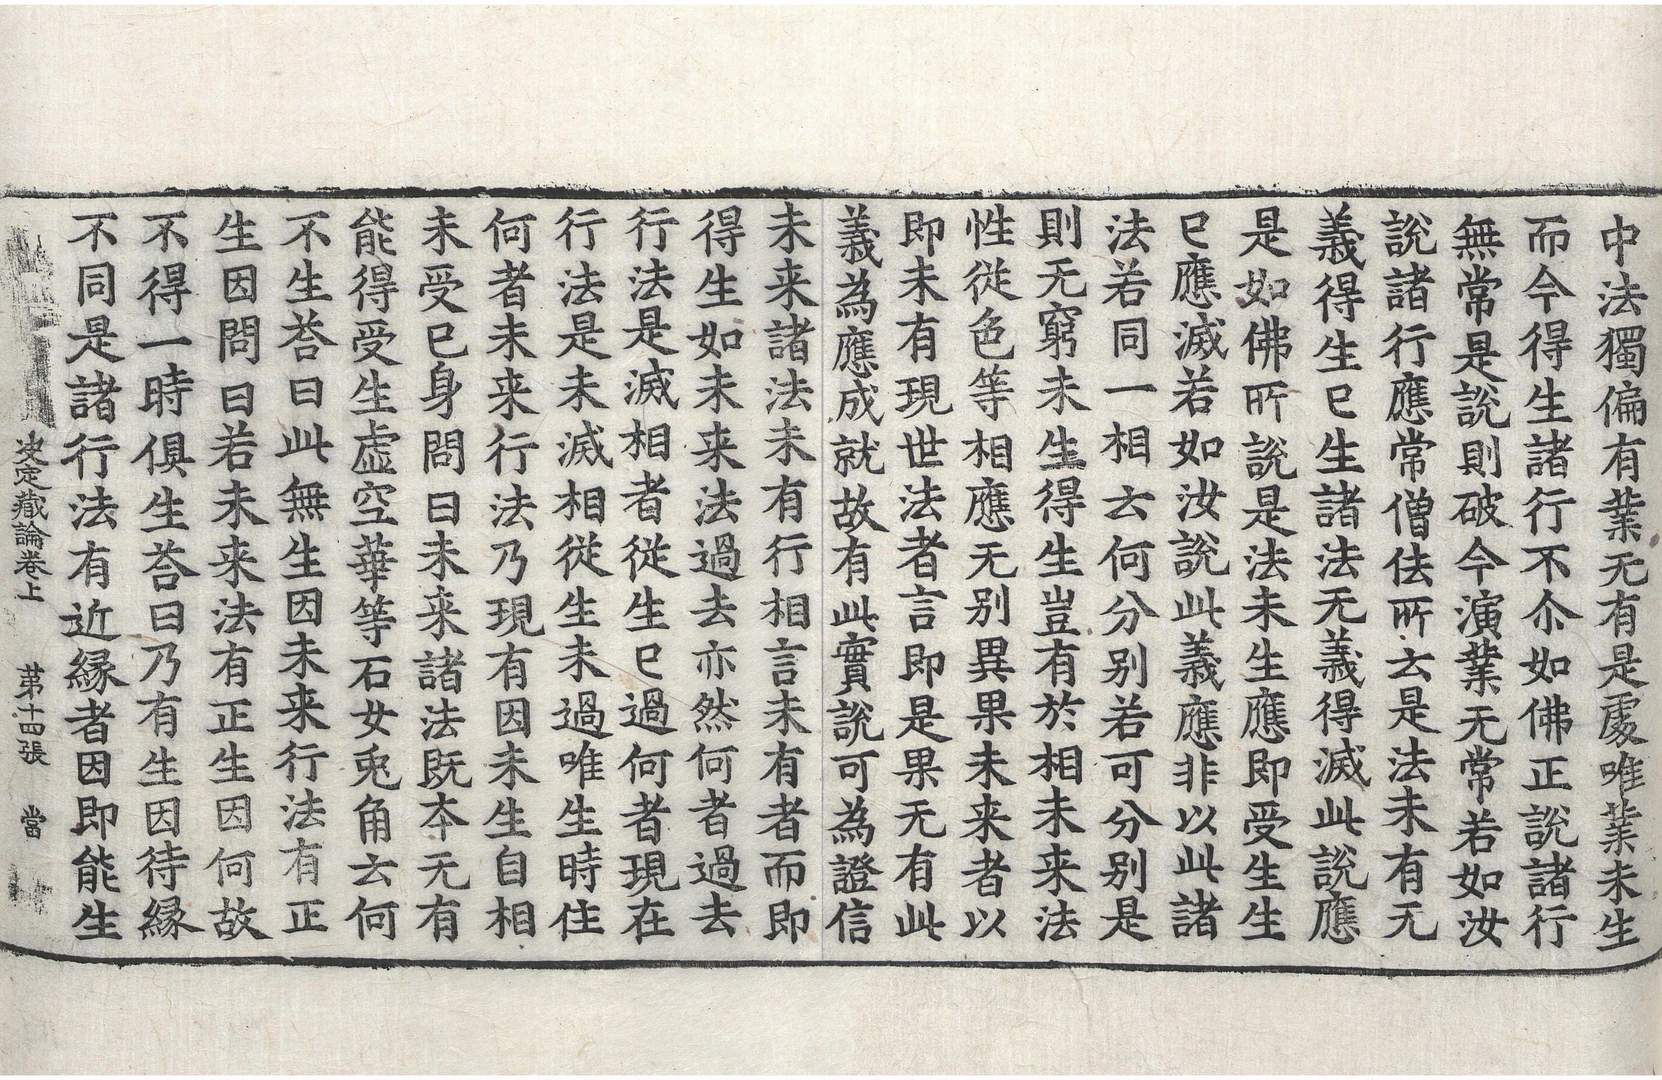 中法獨偏有業无有是處唯業未生
而今得生諸行不尒如佛正說諸行
無常是說則破今演業无常若如汝
說諸行應常僧佉所云是法未有无
義得生已生諸法无義得滅此說應
是如佛所說是法未生應即受生生
已應滅若如汝說此義應非以此諸
法若同一相云何分別若可分別是
則无窮未生得生豈有於相未来法
性從色等相應无別異果未来者以
即未有現世法者言即是果无有此
義為應成就故有此實說可為證信
未来諸法未有行相言未有者而即
得生如未来法過去亦然何者過去
行法是滅相者從生已過何者現在
行法是未滅相從生未過唯生時住
何者未来行法乃現有因未生自相
未受已身問曰未来諸法既本无有
能得受生虛空華等石女兎角云何
不生荅曰此無生因未来行法有正
生因問曰若未来法有正生因何故
不得一時俱生荅曰乃有生因待緣
不同是諸行法有近緣者因即能生
决定藏論卷上 第十四張 當